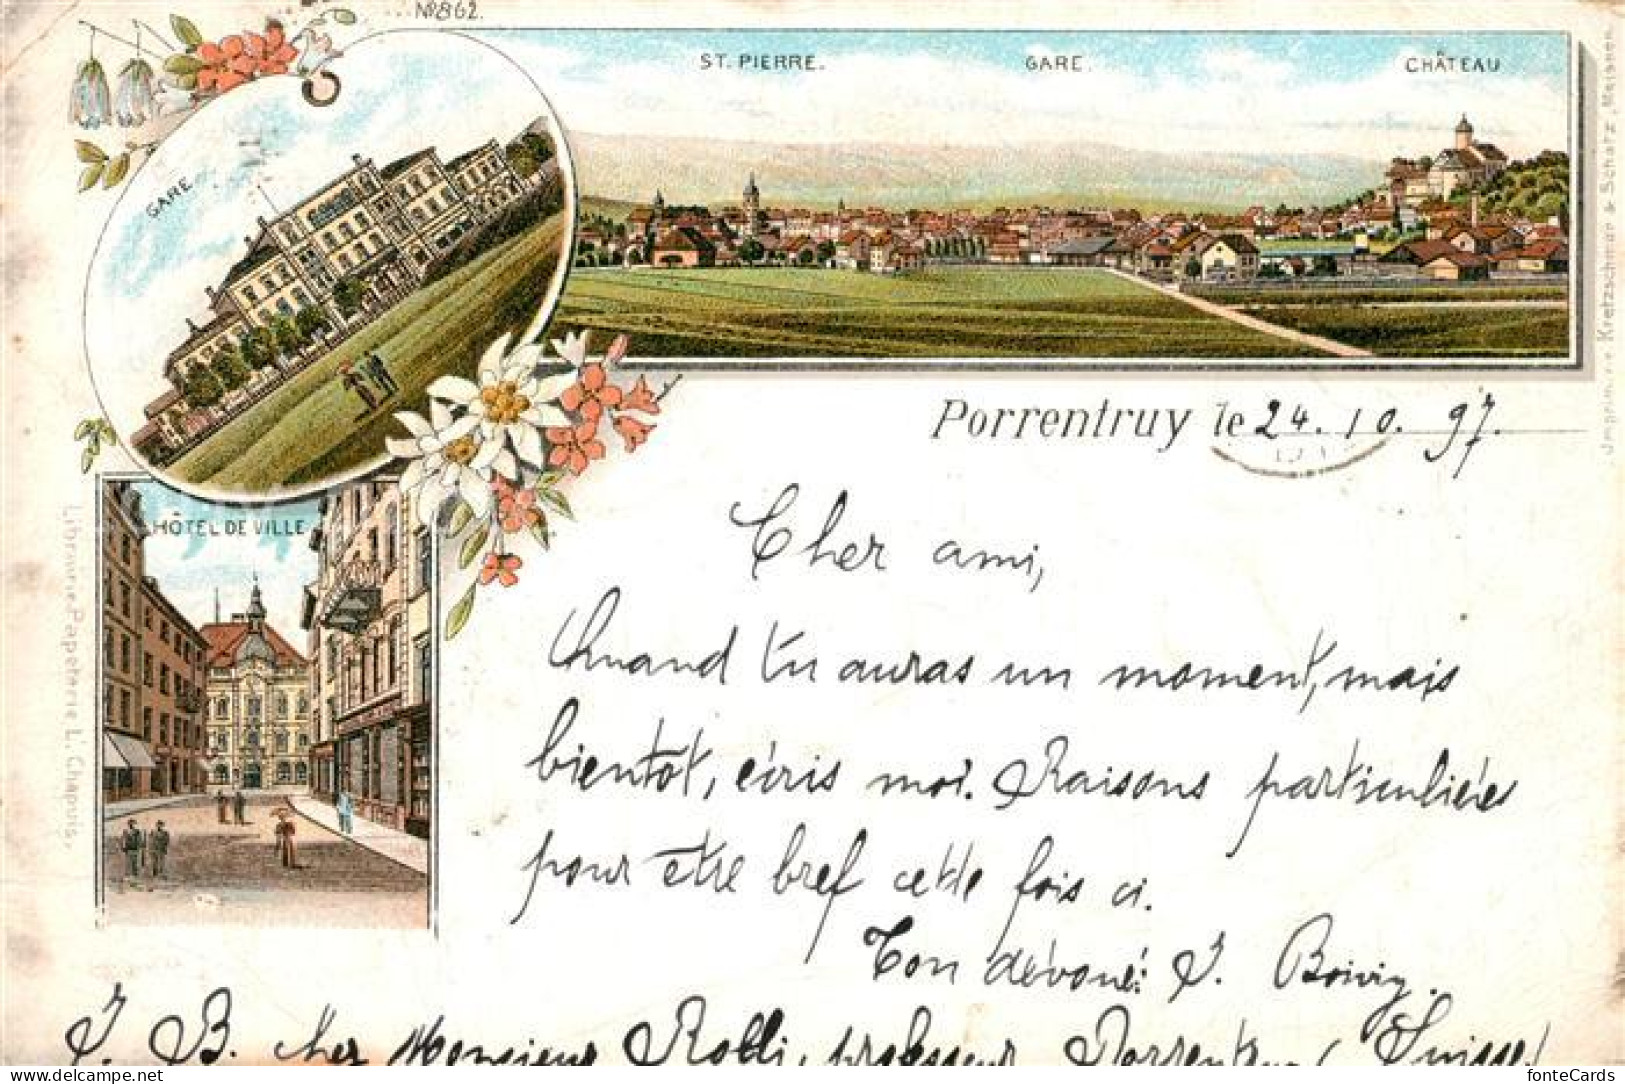 № 862.
ST. PIERRE.
GARE.
CHÂTEAU
GARE
HÔTEL DE VILLE
Imprimerie Kretzschmar & Schatz, Meissen.
Librairie-Papeterie L. Chapuis.
Porrentruy le 24. 10. 97.
Cher ami,
Quand tu auras un moment, mais
bientôt, écris moi. Raisons particulières
pour être bref cette fois ci.
Ton dévoué: J. Boivin.
J. B. chez Monsieur Rolli, professeur Porrentruy (Suisse)
fonteCards